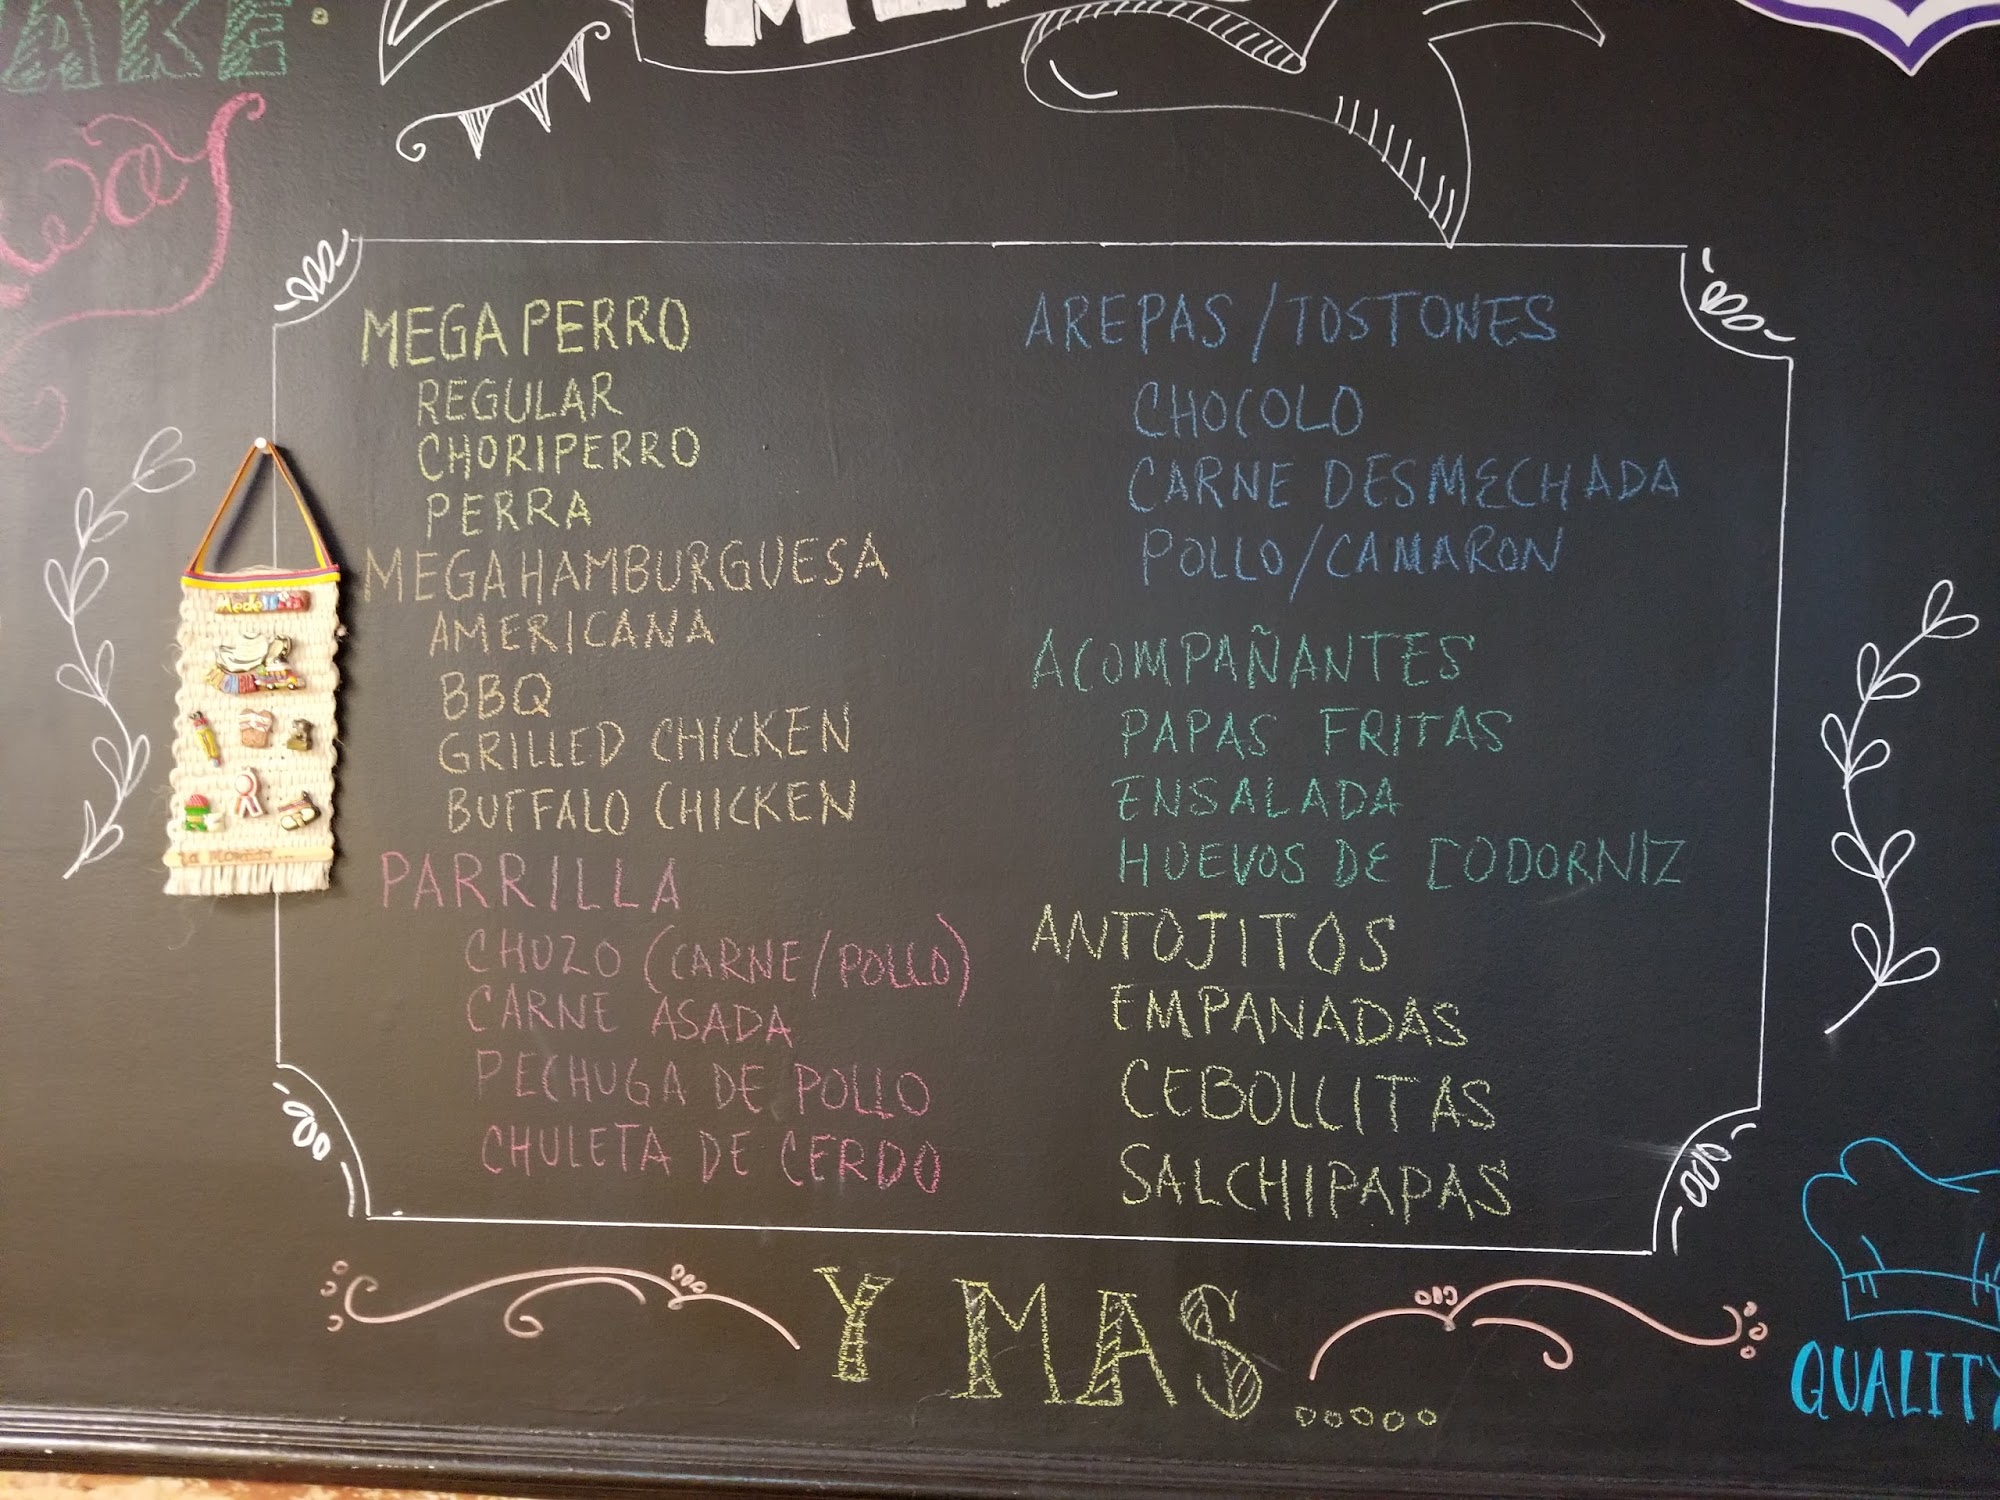 AKE
way
MEGAPERRO
REGULAR
CHORIPERRO
PERRA
MEGAHAMBURGUESA
AMERICANA
BBQ
GRILLED CHICKEN
BUFFALO CHICKEN
PARRILLA
CHUZO (CARNE/POLLO)
CARNE ASADA
PECHUGA DE POLLO
CHULETA DE CERDO
AREPAS/TOSTONES
CHOCOLO
CARNE DESMECHADA
POLLO/CAMARON
ACOMPAÑANTES
PAPAS FRITAS
ENSALADA
HUEVOS DE CODORNIZ
ANTOJITOS
EMPANADAS
CEBOLLITAS
SALCHIPAPAS
Medellin
Y MAS.....
QUALITY